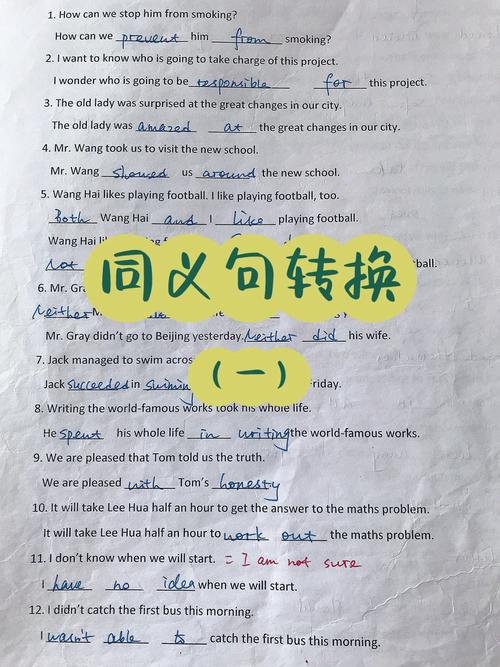 1. How can we stop him from smoking?
How can we prevent him from smoking?
2. I want to know who is going to take charge of this project.
I wonder who is going to be responsible for this project.
3. The old lady was surprised at the great changes in our city.
The old lady was amazed at the great changes in our city.
4. Mr. Wang took us to visit the new school.
Mr. Wang showed us around the new school.
5. Wang Hai likes playing football. I like playing football, too.
Both Wang Hai and I like playing football.
Wang Hai li
Not ball.
同义句转换
6. Mr. Gra
Neither M
Mr. Gray didn't go to Beijing yesterday. Neither did his wife.
7. Jack managed to swim acros
(一)
Jack succeeded in riday.
8. Writing the world-famous works took his whole life.
He spent his whole life in writing the world-famous works.
9. We are pleased that Tom told us the truth.
We are pleased with Tom's honesty
10. It will take Lee Hua half an hour to get the answer to the maths problem.
It will take Lee Hua half an hour to work out the maths problem.
11. I don't know when we will start. = I am not sure
I have no idea when we will start.
12. I didn't catch the first bus this morning.
I wasn't able to catch the first bus this morning.